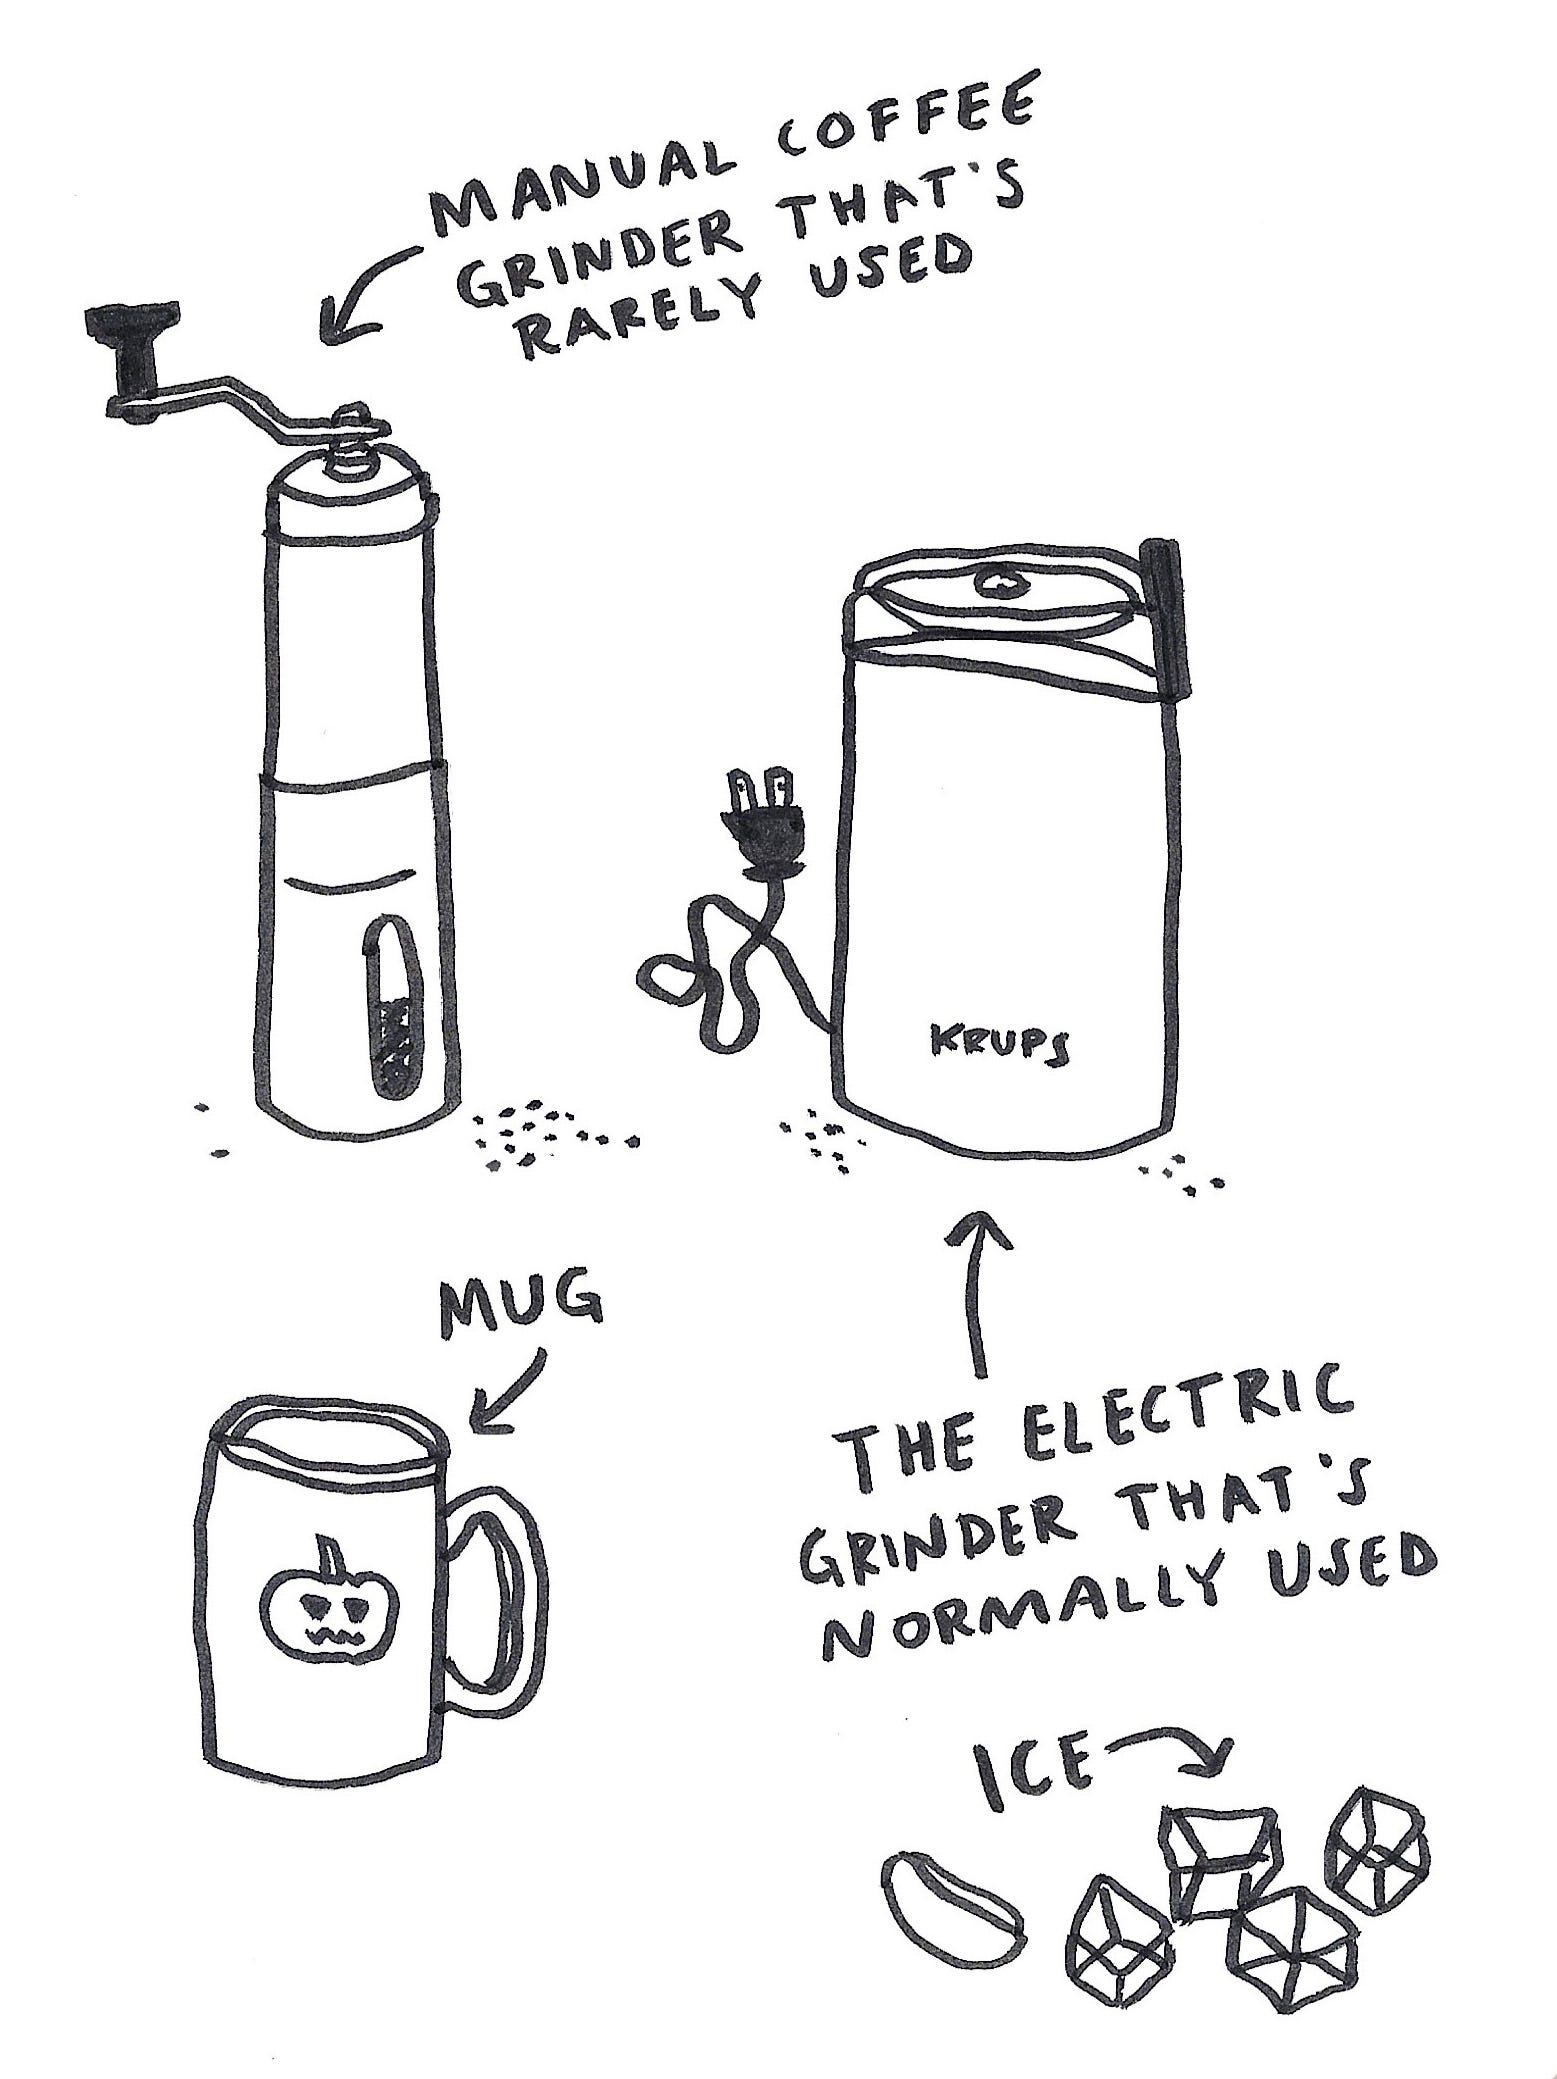 MANUAL COFFEE
GRINDER THAT'S
RARELY USED
KRUPS
MUG
THE ELECTRIC
GRINDER THAT'S
NORMALLY USED
ICE